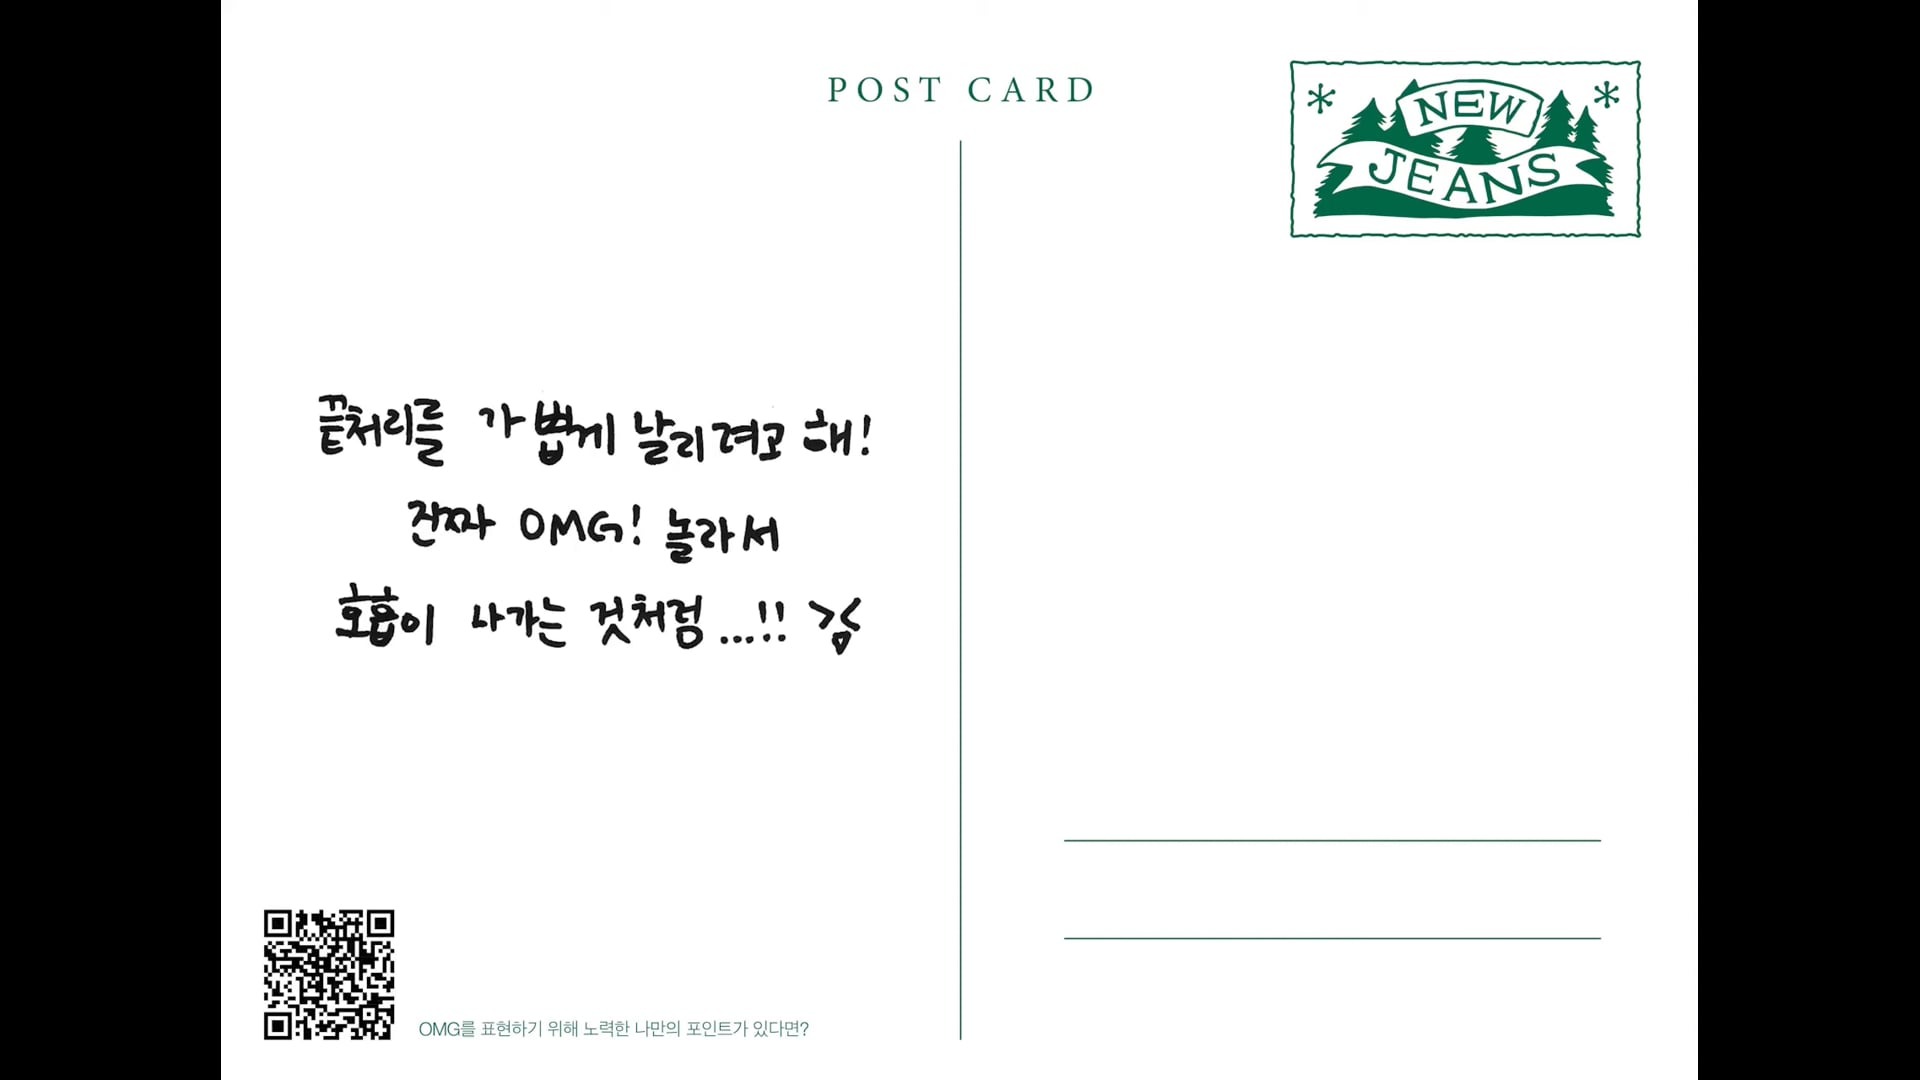 POST CARD
NEW
JEANS
끝처리를 가볍게 날리려고 해!
진짜 OMG! 놀라서
호흡이 나가는 것처럼...!!
OMG를 표현하기 위해 노력한 나만의 포인트가 있다면?